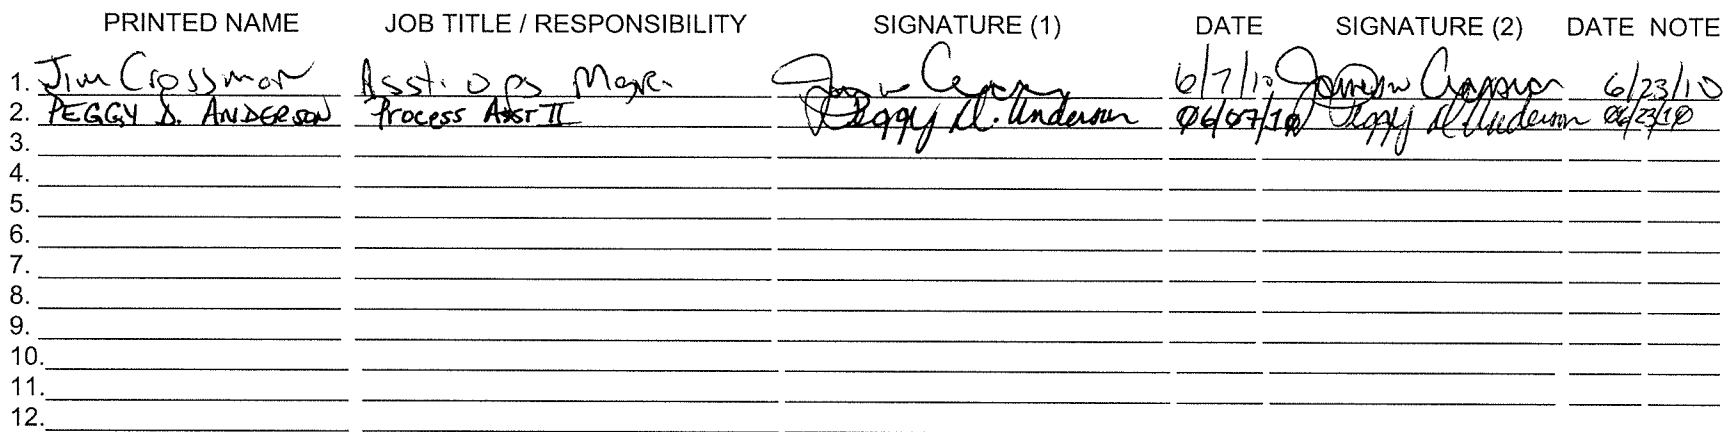 PRINTED NAME JOB TITLE / RESPONSIBILITY SIGNATURE (1) DATE SIGNATURE (2) DATE NOTE
1. Jim Crossman Asst. Ops Mgr. 6/7/10 6/23/10
2. PEGGY D. ANDERSON Process Asst II Peggy D. Anderson 06/07/10 Peggy D Anderson 06/23/10
3.
4.
5.
6.
7.
8.
9.
10.
11.
12.